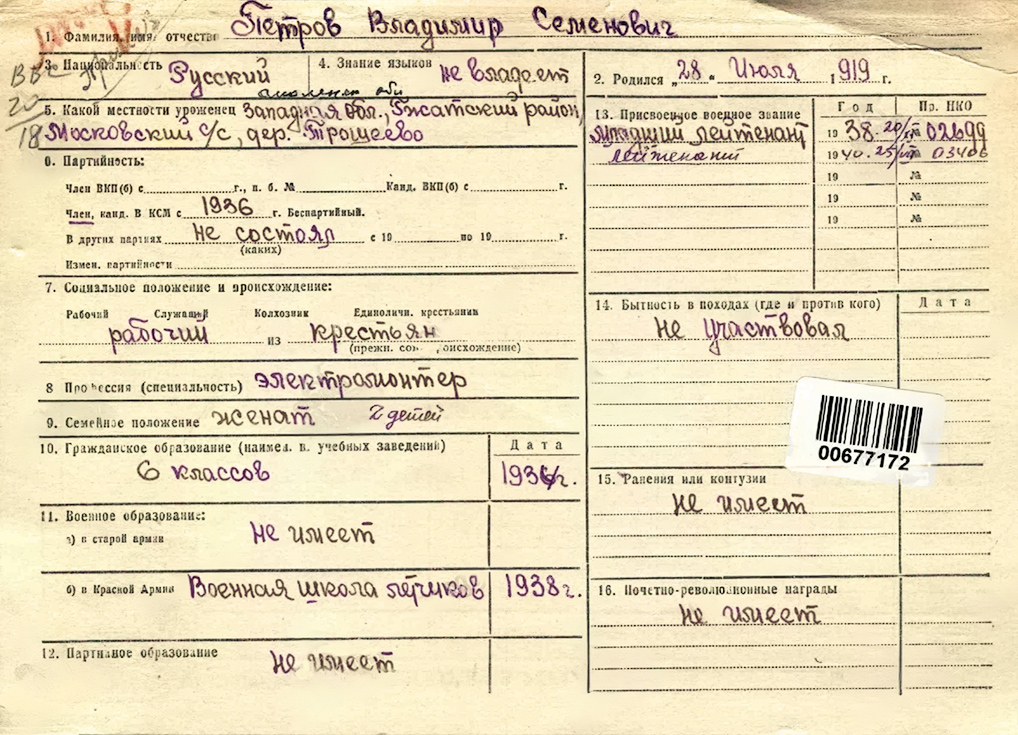 1. Фамилия, имя, отчество Петров Владимир Семенович
3. Национальность Русский
4. Знание языков не владеет
2. Родился „28“ Июля 1919 г.
5. Какой местности уроженец Западная обл., Гжатский район,
Московский с/с, дер. Трощеево
6. Партийность:
Член ВКП(б) с г., п. б. № Канд. ВКП(б) с г.
Член, канд. В КСМ с 1936 г. Беспартийный.
В других партиях не состоял с 19 по 19 г.
(каких)
Измен. партийности
7. Социальное положение и происхождение:
Рабочий Служащий Колхозник Единоличн. крестьянин
рабочий из крестьян
(прежн. соц. происхождение)
8 Профессия (специальность) электромонтер
9. Семейное положение женат 2 детей
10. Гражданское образование (наимен. в. учебных заведений) Дата
6 классов 1936 г.
11. Военное образование:
а) в старой армии не имеет
б) в Красной Армии Военная школа летчиков 1938 г.
12. Партийное образование не имеет
13. Присвоенное военное звание Год Пр. НКО
младший лейтенант 1938. №
лейтенант 1940. 25/ № 03406
19 №
19 №
19 №
14. Бытность в походах (где и против кого) Дата
не участвовал
00677172
15. Ранения или контузии
не имеет
16. Почетно-революционные награды
не имеет